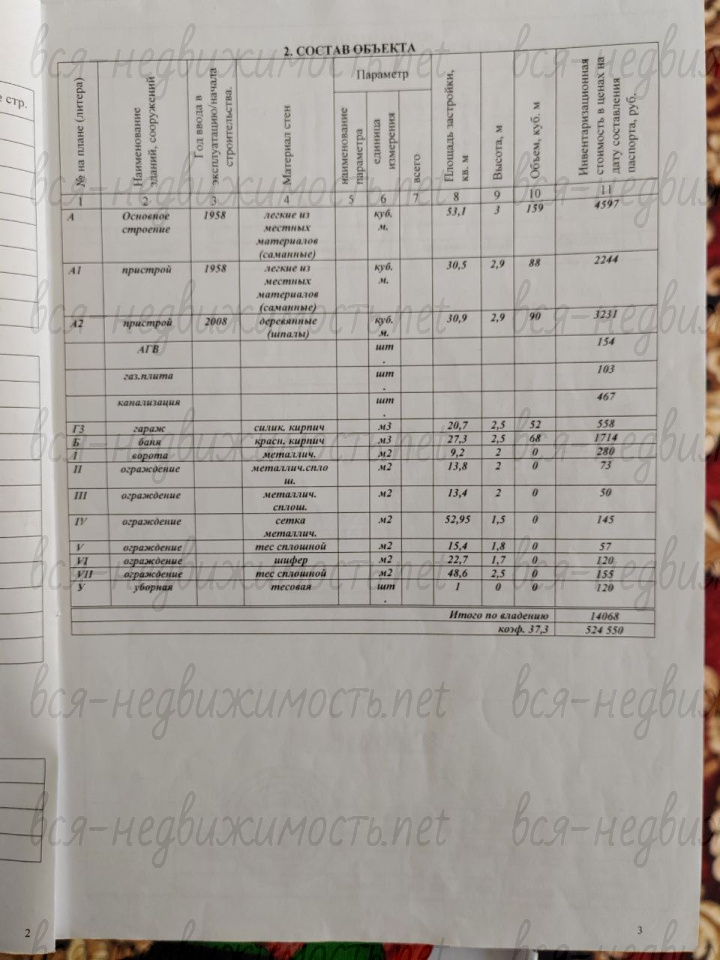 е стр.
2. СОСТАВ ОБЪЕКТА
№ на плане (литера)
Наименование зданий, сооружений
Год ввода в эксплуатацию/начала строительства.
Материал стен
Параметр
наименование параметра
единица измерения
всего
Площадь застройки, кв. м
Высота, м
Объем, куб. м
Инвентаризационная стоимость в ценах на дату составления паспорта, руб.
1 2 3 4 5 6 7 8 9 10 11
А Основное строение 1958 легкие из местных материалов (саманные) куб. м. 53,1 3 159 4597
А1 пристрой 1958 легкие из местных материалов (саманные) куб. м. 30,5 2,9 88 2244
А2 пристрой 2008 деревянные (шпалы) куб. м. 30,9 2,9 90 3231
АГВ шт . 154
газ.плита шт . 103
канализация шт . 467
Г3 гараж силик. кирпич м3 20,7 2,5 52 558
Б баня красн. кирпич м3 27,3 2,5 68 1714
I ворота металлич. м2 9,2 2 0 280
II ограждение металлич.спло ш. м2 13,8 2 0 73
III ограждение металлич. сплош. м2 13,4 2 0 50
IV ограждение сетка металлич. м2 52,95 1,5 0 145
V ограждение тес сплошной м2 15,4 1,8 0 57
VI ограждение шифер м2 22,7 1,7 0 120
VII ограждение тес сплошной м2 48,6 2,5 0 155
У уборная тесовая шт . 1 0 0 120
Итого по владению 14068
коэф. 37,3 524 550
2
3
вся-недвижимость.net
вся-недвижимость.net
вся-недвижимость.net
вся-недвижимость.net
вся-недвижимость.net
вся-недвижимость.net
вся-недвижимость.net
вся-недвижимость.net